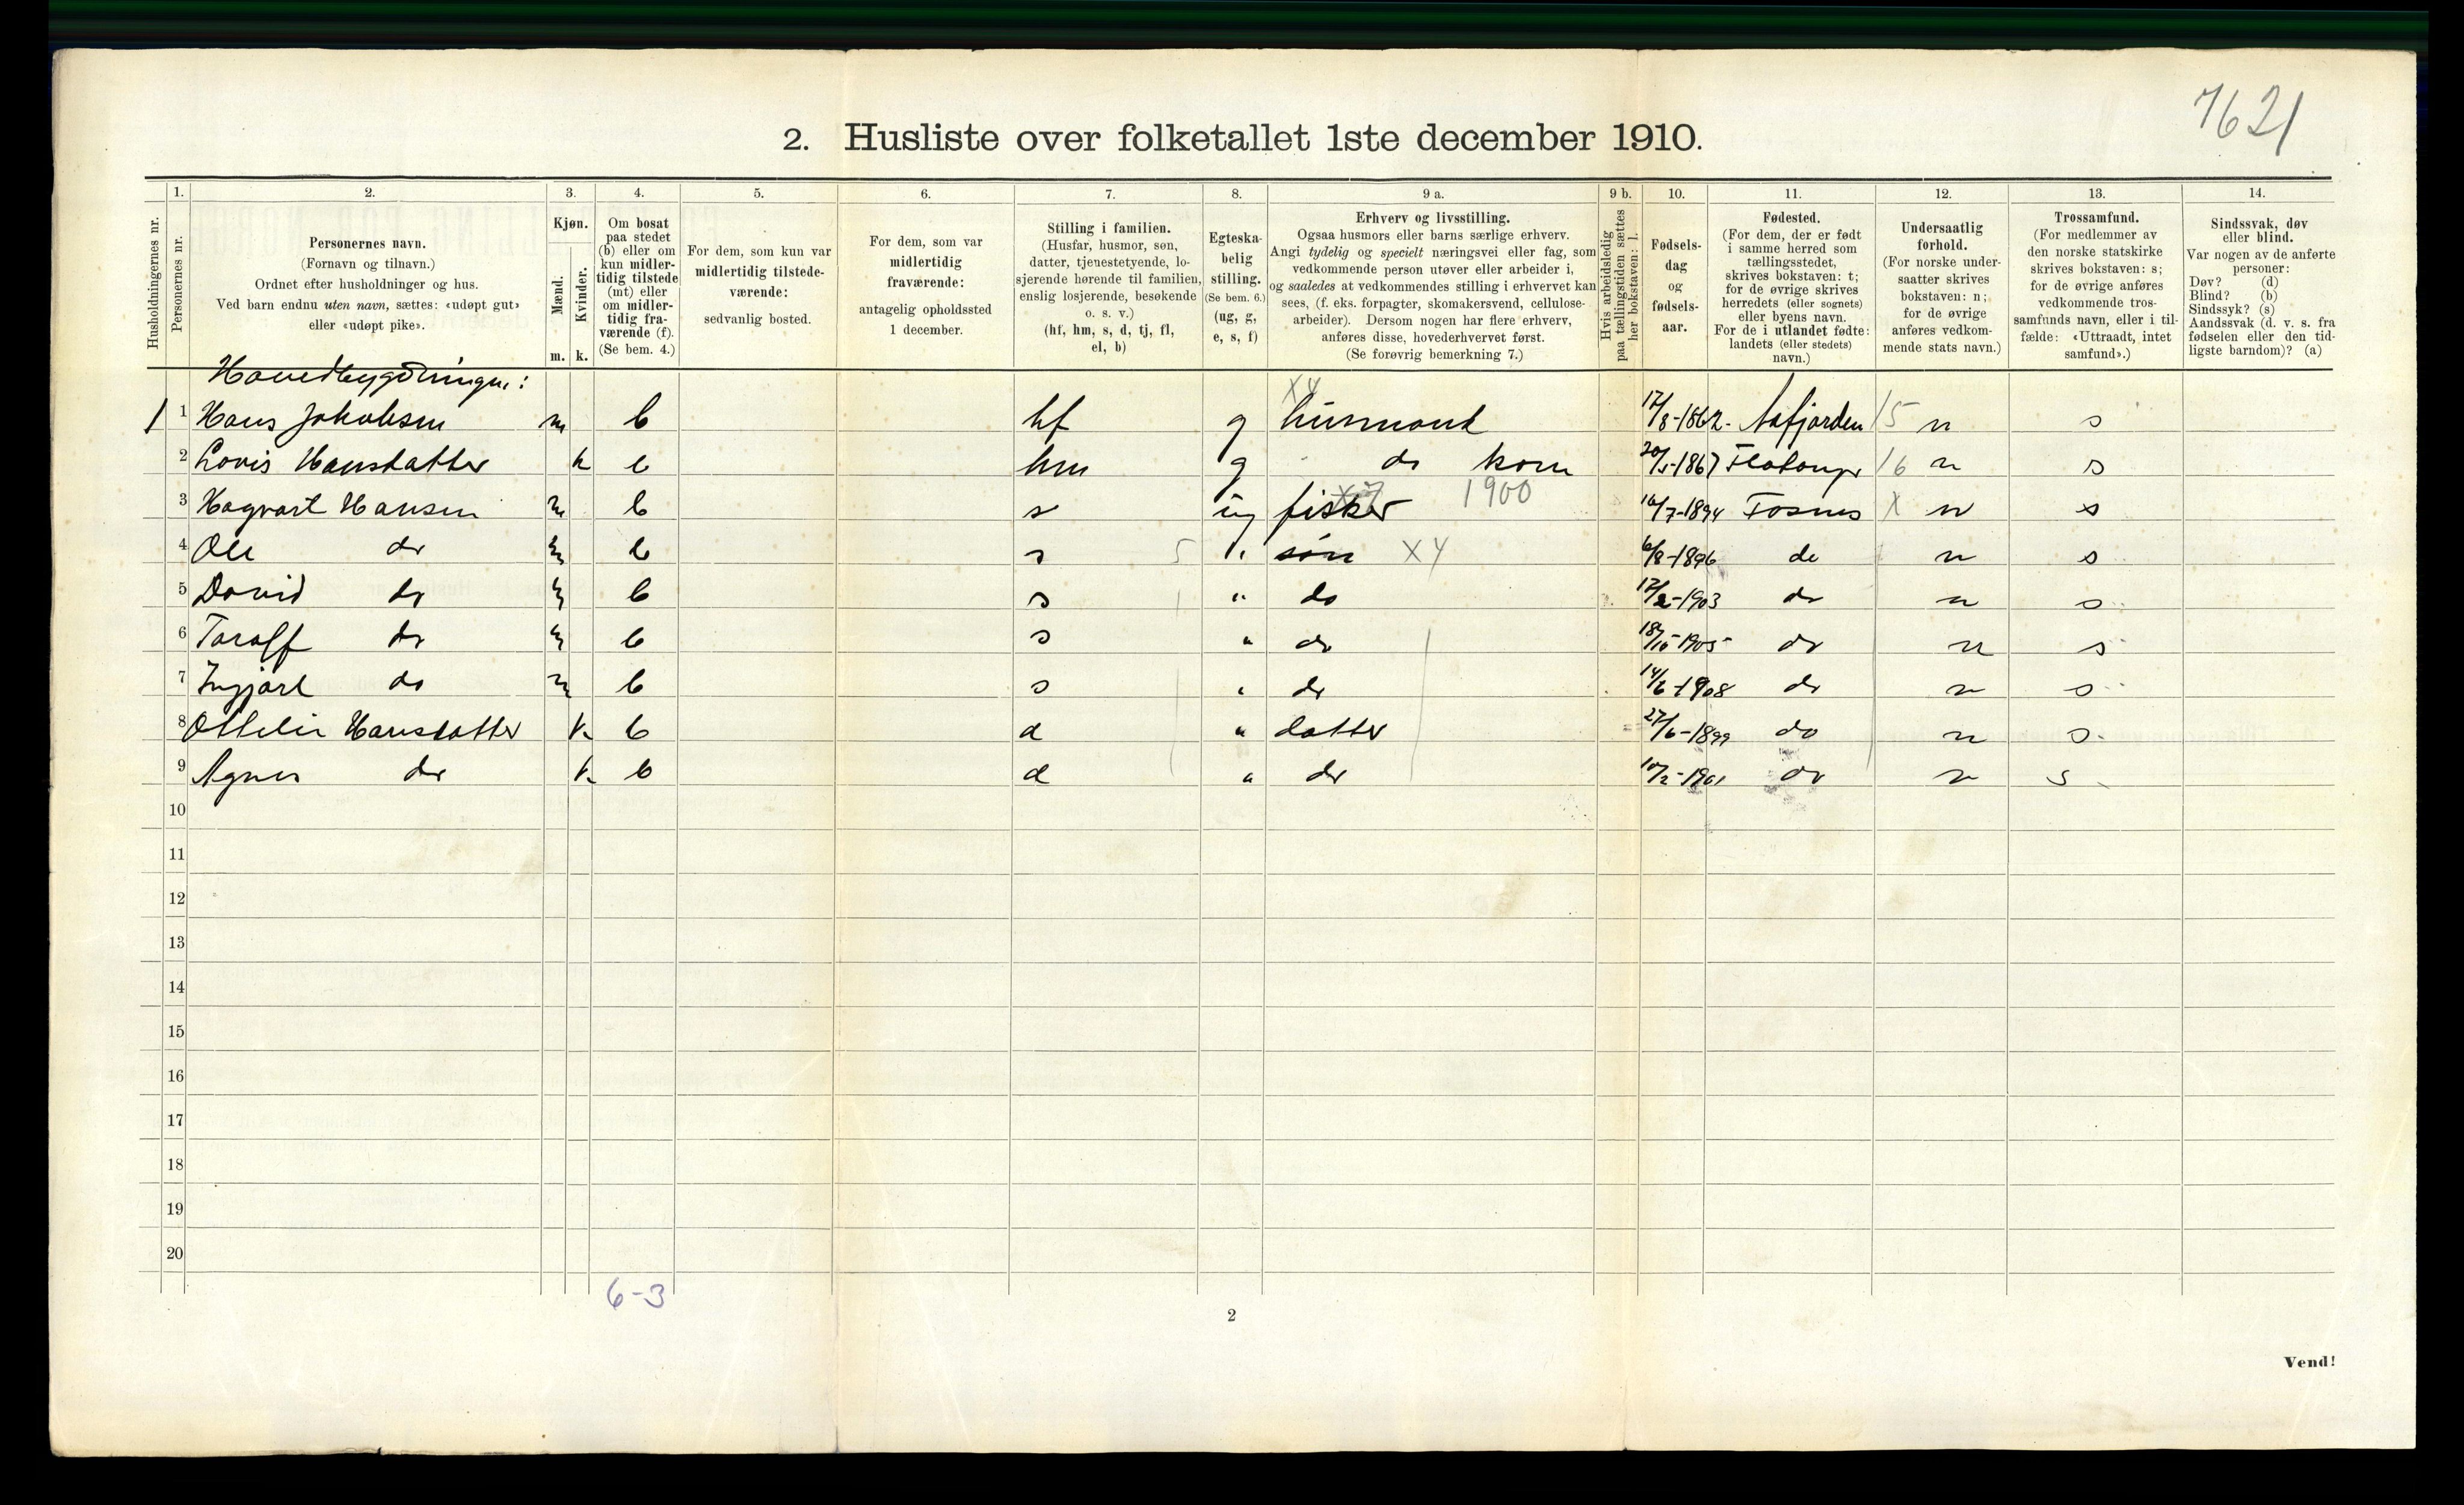 7621
2. Husliste over folketallet 1ste december 1910.
1. 2. 3. 4. 5. 6. 7. 8. 9 a. 9 b. 10. 11. 12. 13. 14.
Husholdningernes nr.
Personernes nr.
Personernes navn.
(Fornavn og tilnavn.)
Ordnet efter husholdninger og hus.
Ved barn endnu uten navn, sættes: «udøpt gut»
eller «udøpt pike».
Kjøn.
Mænd.
Kvinder.
m. k.
Om bosat
paa stedet
(b) eller om
kun midler-
tidig tilstede
(mt) eller
om midler-
tidig fra-
værende (f).
(Se bem. 4.)
For dem, som kun var
midlertidig tilstede-
værende:
sedvanlig bosted.
For dem, som var
midlertidig
fraværende:
antagelig opholdssted
1 december.
Stilling i familien.
(Husfar, husmor, søn,
datter, tjenestetyende, lo-
sjerende hørende til familien,
enslig losjerende, besøkende
o. s. v.)
(hf, hm, s, d, tj, fl,
el, b)
Egteska-
belig
stilling.
(Se bem. 6.)
(ug, g,
e, s, f)
Erhverv og livsstilling.
Ogsaa husmors eller barns særlige erhverv.
Angi tydelig og specielt næringsvei eller fag, som
vedkommende person utøver eller arbeider i,
og saaledes at vedkommendes stilling i erhvervet kan
sees, (f. eks. forpagter, skomakersvend, cellulose-
arbeider). Dersom nogen har flere erhverv,
anføres disse, hovederhvervet først.
(Se forøvrig bemerkning 7.)
Hvis arbeidsledig
paa tællingstiden sættes
her bokstaven: l.
Fødsels-
dag
og
fødsels-
aar.
Fødested.
(For dem, der er født
i samme herred som
tællingsstedet,
skrives bokstaven: t;
for de øvrige skrives
herredets (eller sognets)
eller byens navn.
For de i utlandet fødte:
landets (eller stedets)
navn.)
Undersaatlig
forhold.
(For norske under-
saatter skrives
bokstaven: n;
for de øvrige
anføres vedkom-
mende stats navn.)
Trossamfund.
(For medlemmer av
den norske statskirke
skrives bokstaven: s;
for de øvrige anføres
vedkommende tros-
samfunds navn, eller i til-
fælde: «Uttraadt, intet
samfund».)
Sindssvak, døv
eller blind.
Var nogen av de anførte
personer:
Døv? (d)
Blind? (b)
Sindssyk? (s)
Aandssvak (d. v. s. fra
fødselen eller den tid-
ligste barndom)? (a)
Hovedbygdningen:
X4
1 1 Hans Jakobsen m b hf g husmand 17/8-1862. Aafjorden 15 n s
2 Lovis Hansdatter k b hm g do kone 20/5-1867 16 n s
X7 1900
3 Hagvart Hansen m b s ug fisker 16/7-1894 Fosnes X n s
4 Ole do m b s 5 " søn X4 6/8-1896 do n s
5 David do m b s 1 " do 17/2-1903 do n s
6 Toralf do m b s " do 18/10-1905 do n s
7 Ingjart do m b s " do 14/6-1908 do n s
8 Ottelie Hansdatter k b d " datter 27/6-1899 do n s
9 Agnes do k b d " do 10/2-1901 do n s
10
11
12
13
14
15
16
17
18
19
20
6-3
2
Vend!